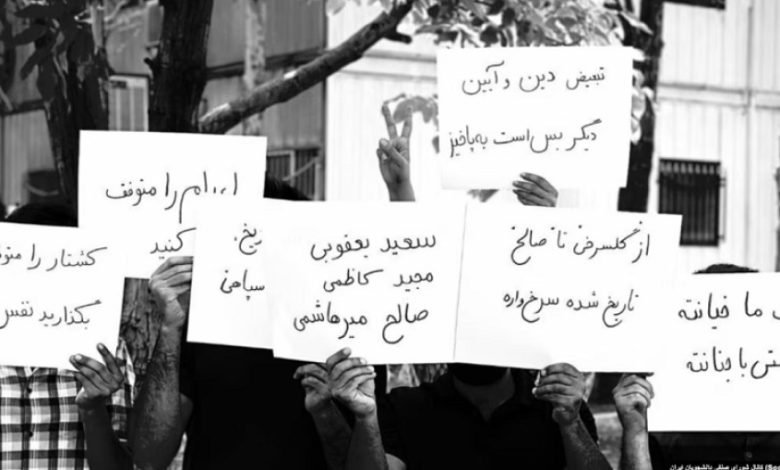 تبعیض دین و آیین
دیگر بس است به‌پاخیز
اعدام را متوقف
کنید
کشتار را متوقف
بگذارید نفس
سپاهی
سعید یعقوبی
مجید کاظمی
صالح میرهاشمی
از گلسرخی تا صالح
تاریخ شده سرخ‌واره
ما خیانته
کانال شورای صنفی دانشجویان ایران